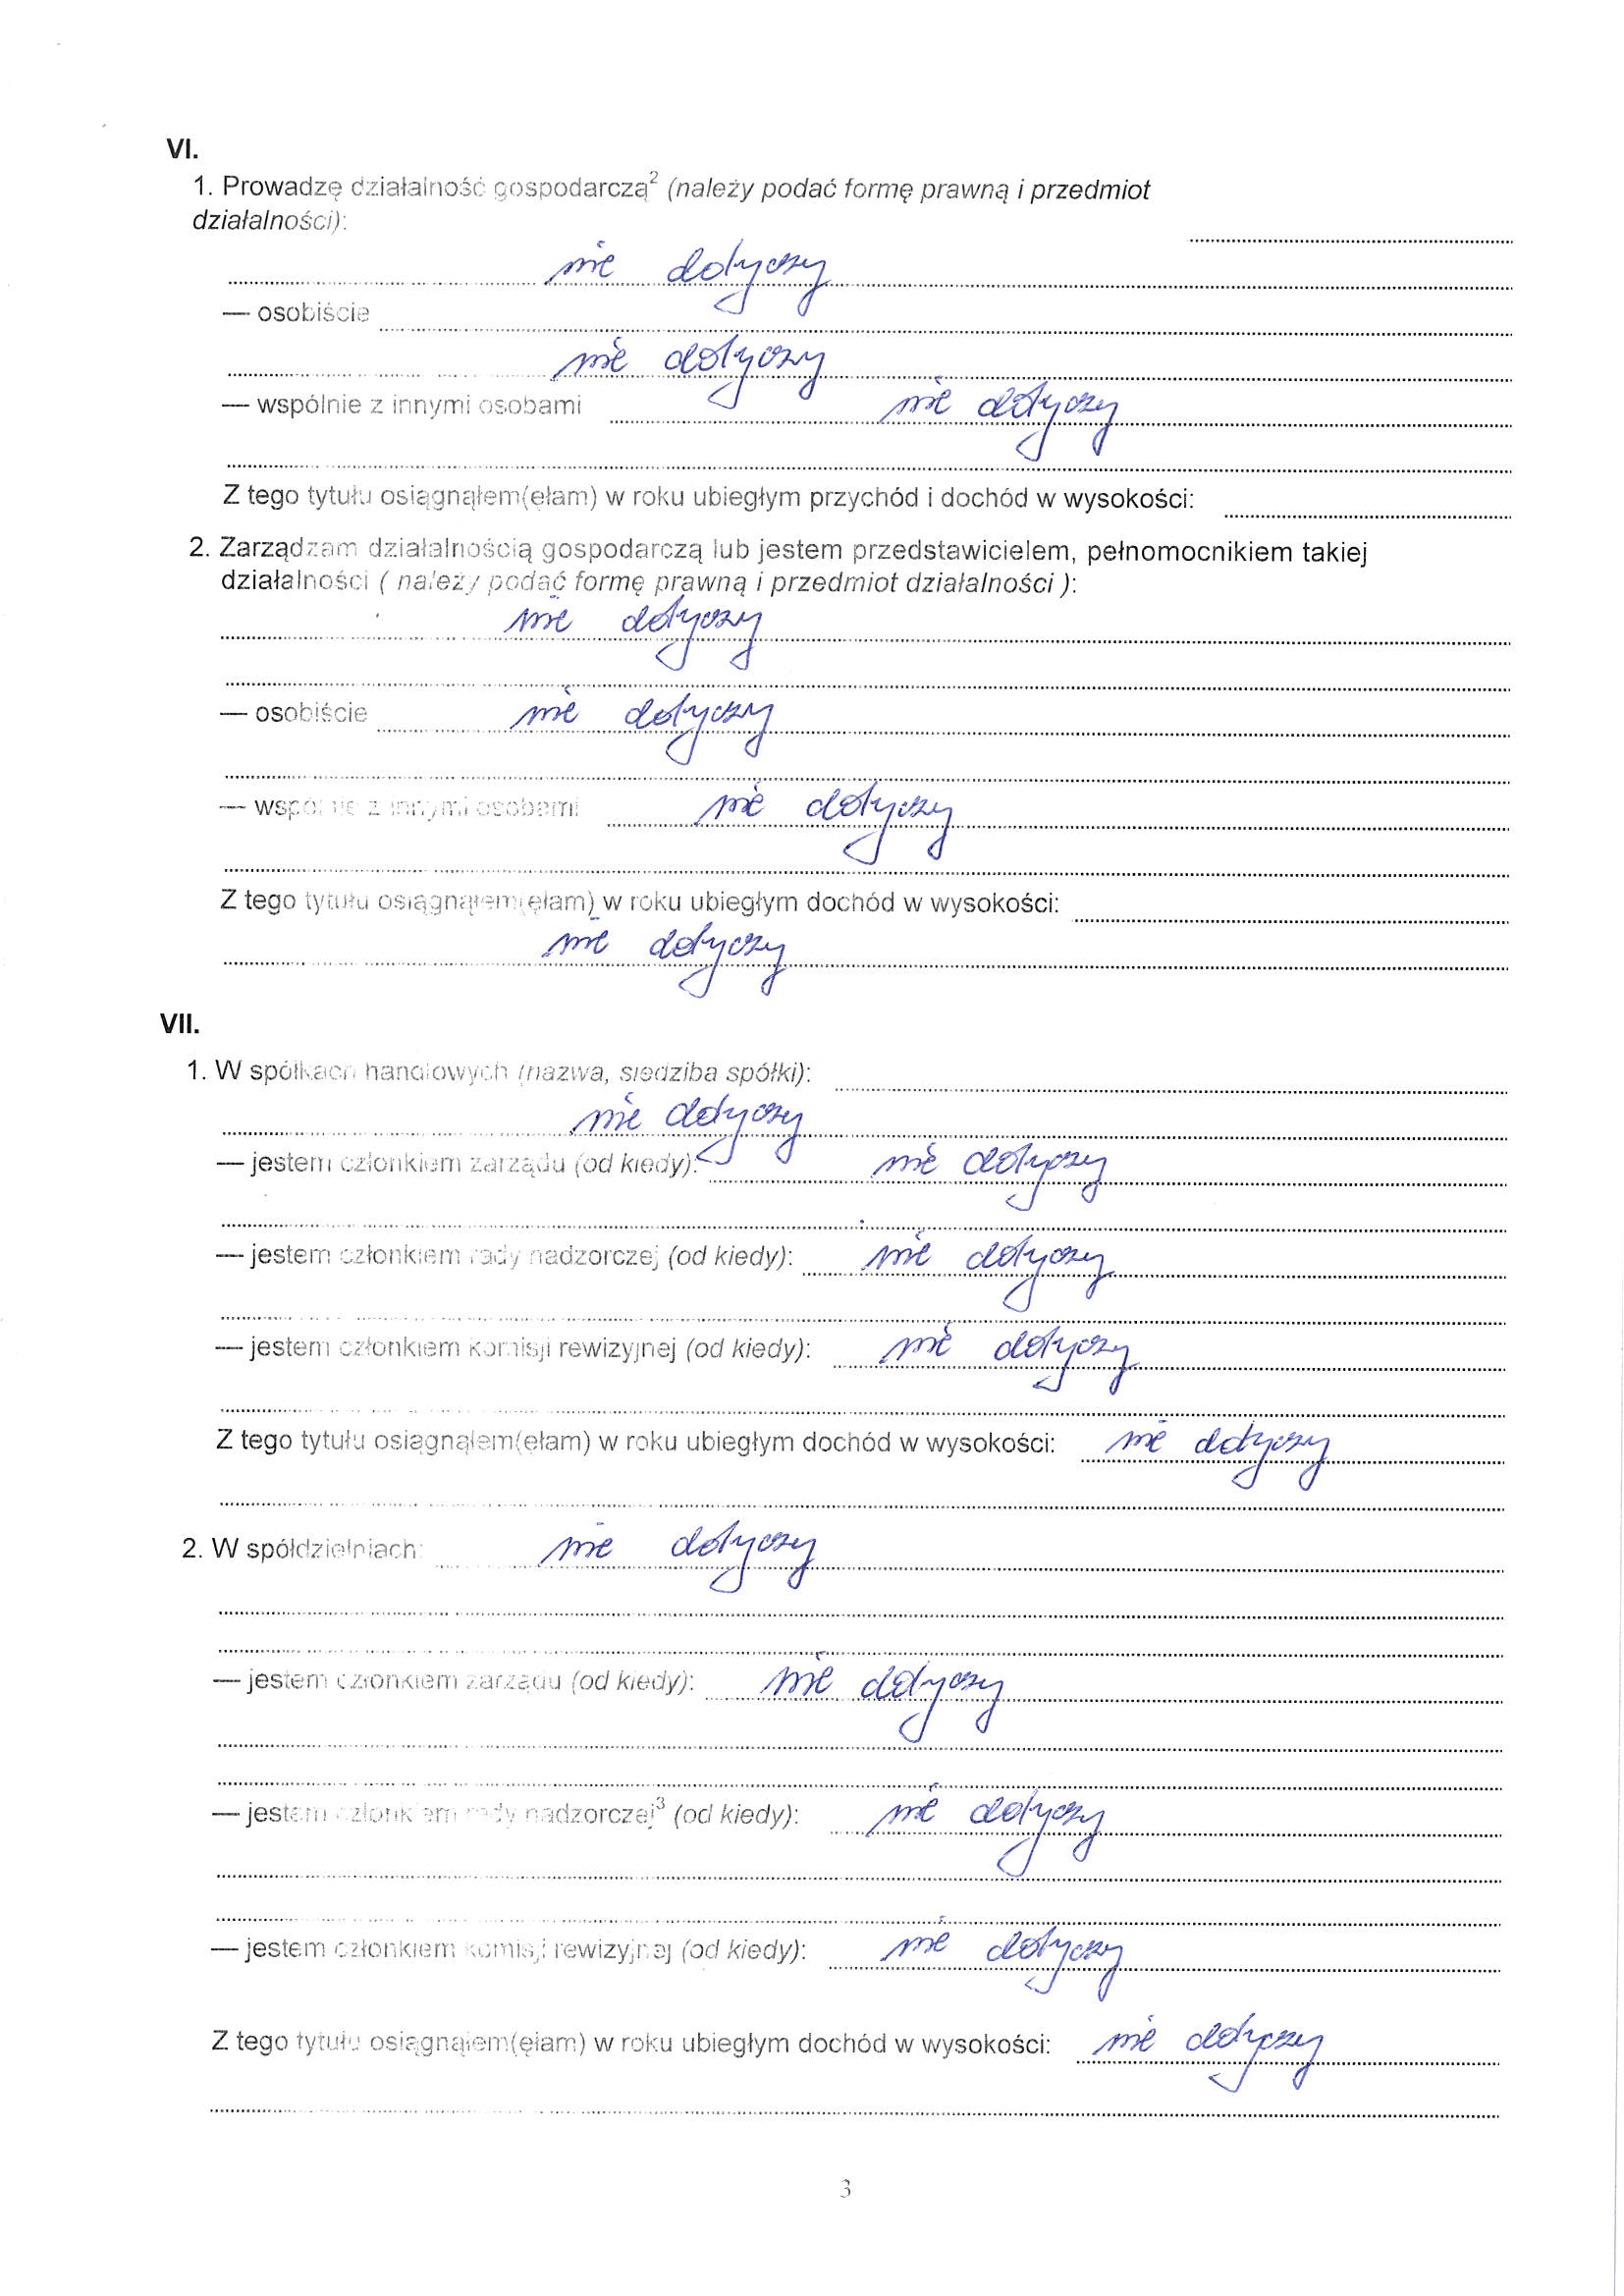 VI.
1. Prowadzę działalność gospodarczą² (należy podać formę prawną i przedmiot
działalności):
nie dotyczy
— osobiście
nie dotyczy
— wspólnie z innymi osobami nie dotyczy
Z tego tytułu osiągnąłem(ęłam) w roku ubiegłym przychód i dochód w wysokości:
2. Zarządzam działalnością gospodarczą lub jestem przedstawicielem, pełnomocnikiem takiej
działalności ( należy podać formę prawną i przedmiot działalności ):
nie dotyczy
— osobiście nie dotyczy
— wspólnie z innymi osobami nie dotyczy
Z tego tytułu osiągnąłem(ęłam) w roku ubiegłym dochód w wysokości:
nie dotyczy
VII.
1. W spółkach handlowych (nazwa, siedziba spółki):
nie dotyczy
— jestem członkiem zarządu (od kiedy): nie dotyczy
— jestem członkiem rady nadzorczej (od kiedy): nie dotyczy
— jestem członkiem komisji rewizyjnej (od kiedy): nie dotyczy
Z tego tytułu osiągnąłem(ęłam) w roku ubiegłym dochód w wysokości: nie dotyczy
2. W spółdzielniach: nie dotyczy
— jestem członkiem zarządu (od kiedy): nie dotyczy
— jestem członkiem rady nadzorczej³ (od kiedy): nie dotyczy
— jestem członkiem komisji rewizyjnej (od kiedy): nie dotyczy
Z tego tytułu osiągnąłem(ęłam) w roku ubiegłym dochód w wysokości: nie dotyczy
3